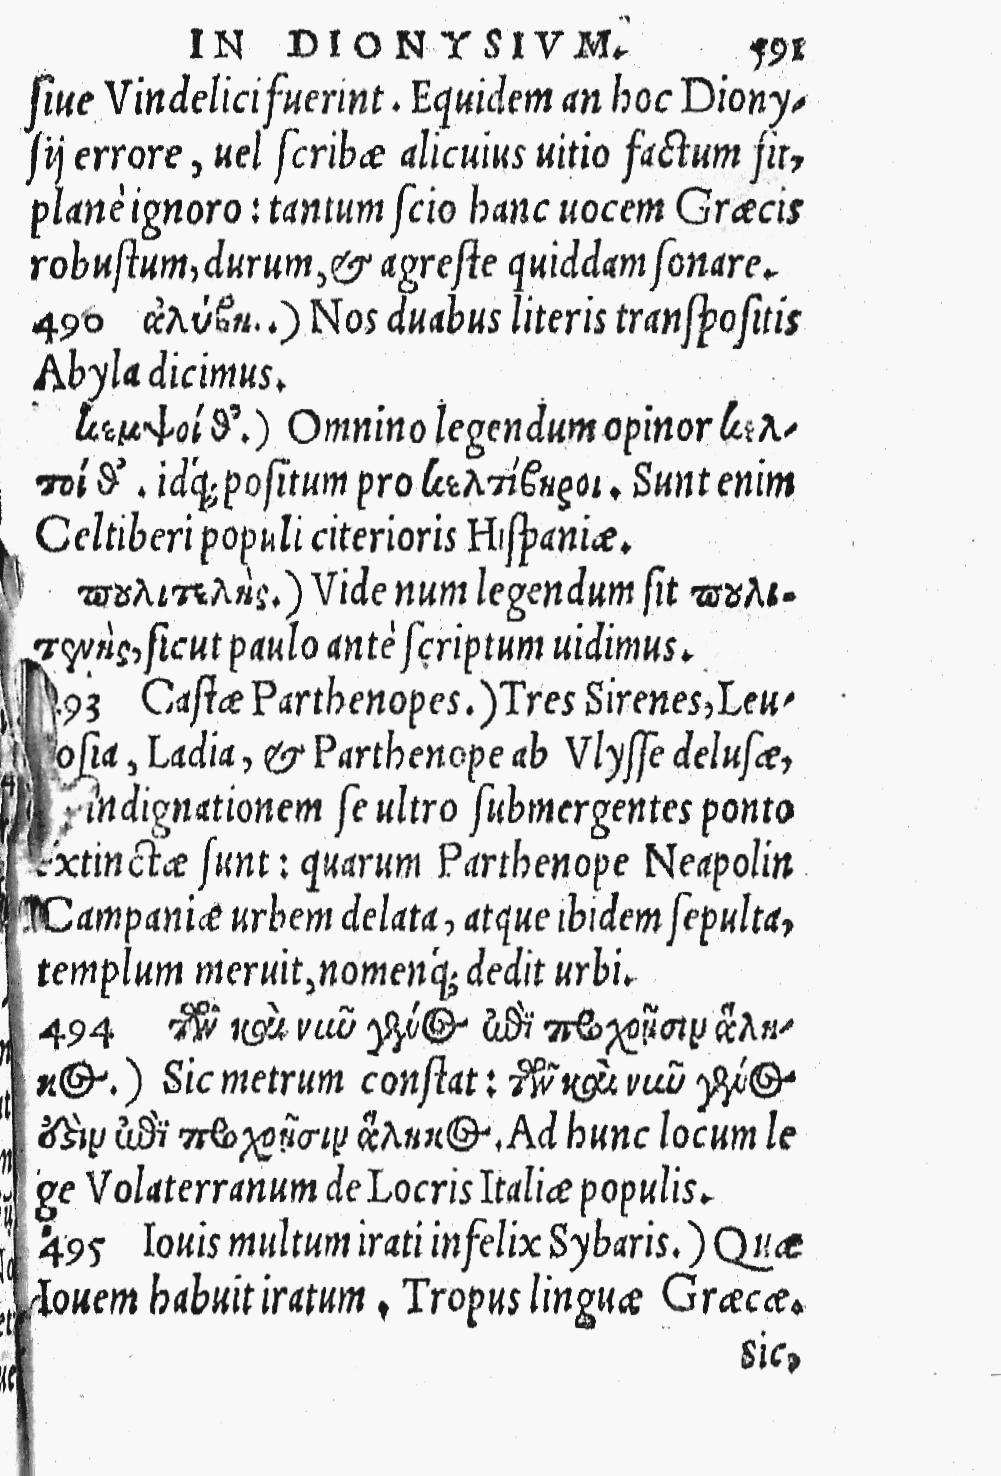 IN DIONYSIVM. 591
ſiue Vindelici fuerint. Equidem an hoc Diony-
ſij errore, uel ſcribæ alicuius uitio factum ſit,
planè ignoro: tantum ſcio hanc uocem Græcis
robuſtum, durum, & agreſte quiddam ſonare.
490 ἀλύβη..) Nos duabus literis tranſpoſitis
Abyla dicimus.
κεμψοί θ’.) Omnino legendum opinor κελ-
τοί θ’. idq́; poſitum pro κελτίβηροι. Sunt enim
Celtiberi populi citerioris Hiſpaniæ.
πουλιτελὴς.) Vide num legendum ſit πουλι-
τενὴς, ſicut paulo antè ſcriptum uidimus.
93 Caſtæ Parthenopes.) Tres Sirenes, Leu-
oſia, Ladia, & Parthenope ab Vlyſſe deluſæ,
indignationem ſe ultro ſubmergentes ponto
extinctæ ſunt: quarum Parthenope Neapolin
Campaniæ urbem delata, atque ibidem ſepulta,
templum meruit, nomenq́; dedit urbi.
494 ἀλη-
κτος.) Sic metrum conſtat:
Ad hunc locum le
ge Volaterranum de Locris Italiæ populis.
495 Iouis multum irati infelix Sybaris.) Quæ
Iouem habuit iratum. Tropus linguæ Græcæ.
Sic,